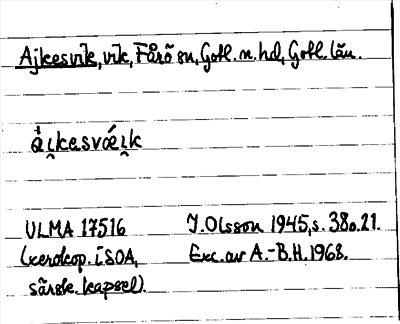 Ajkesvik, vik, Fårö sn, Gotl. n. hd, Gotl. län.
ȧi̯kesvǽi̯k
ULMA 17516 I. Olsson 1945, s. 38 o. 21.
(xerokop. i SOA, Exc. av A.-B.H. 1968.
särsk. kapsel).